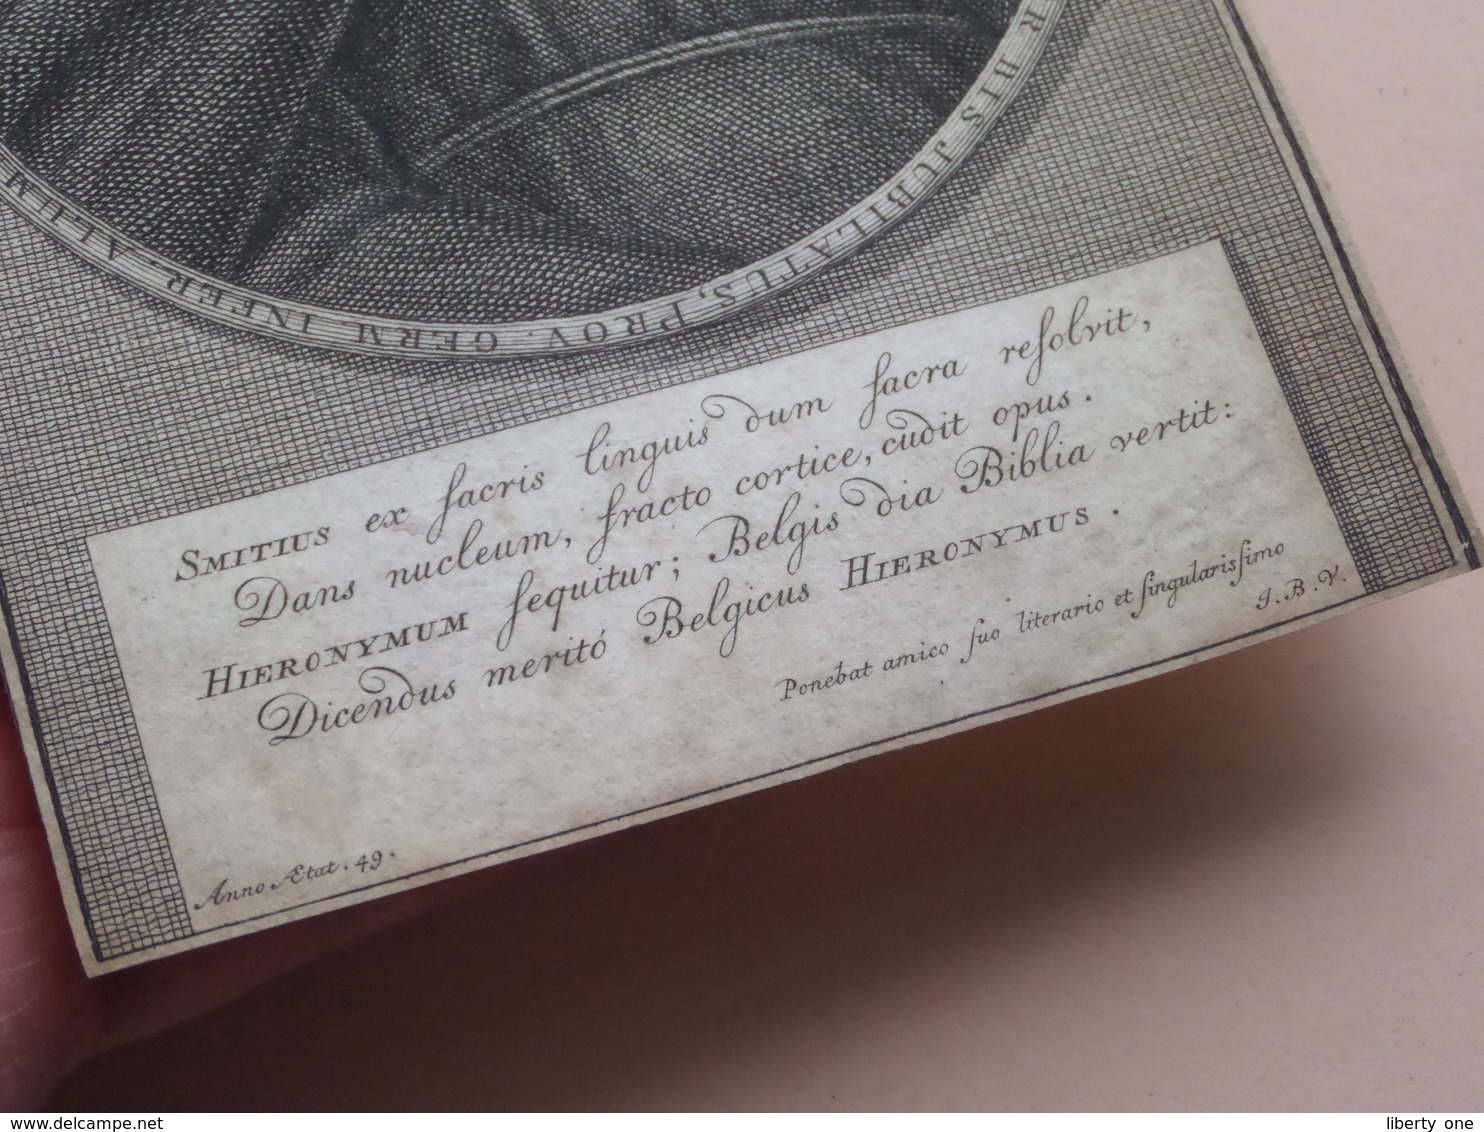 R BIS JUBILATUS, PROV. GERM. INFER. ALUM
SMITIUS ex ſacris linguis dum ſacra reſolvit,
Dans nucleum, fracto cortice, cudit opus.
HIERONYMUM ſequitur; Belgis dia Biblia vertit:
Dicendus meritó Belgicus HIERONYMUS.
Ponebat amico ſuo literario et ſingularisſimo
J. B. V.
Anno Ætat. 49.
www.delcampe.net
liberty one